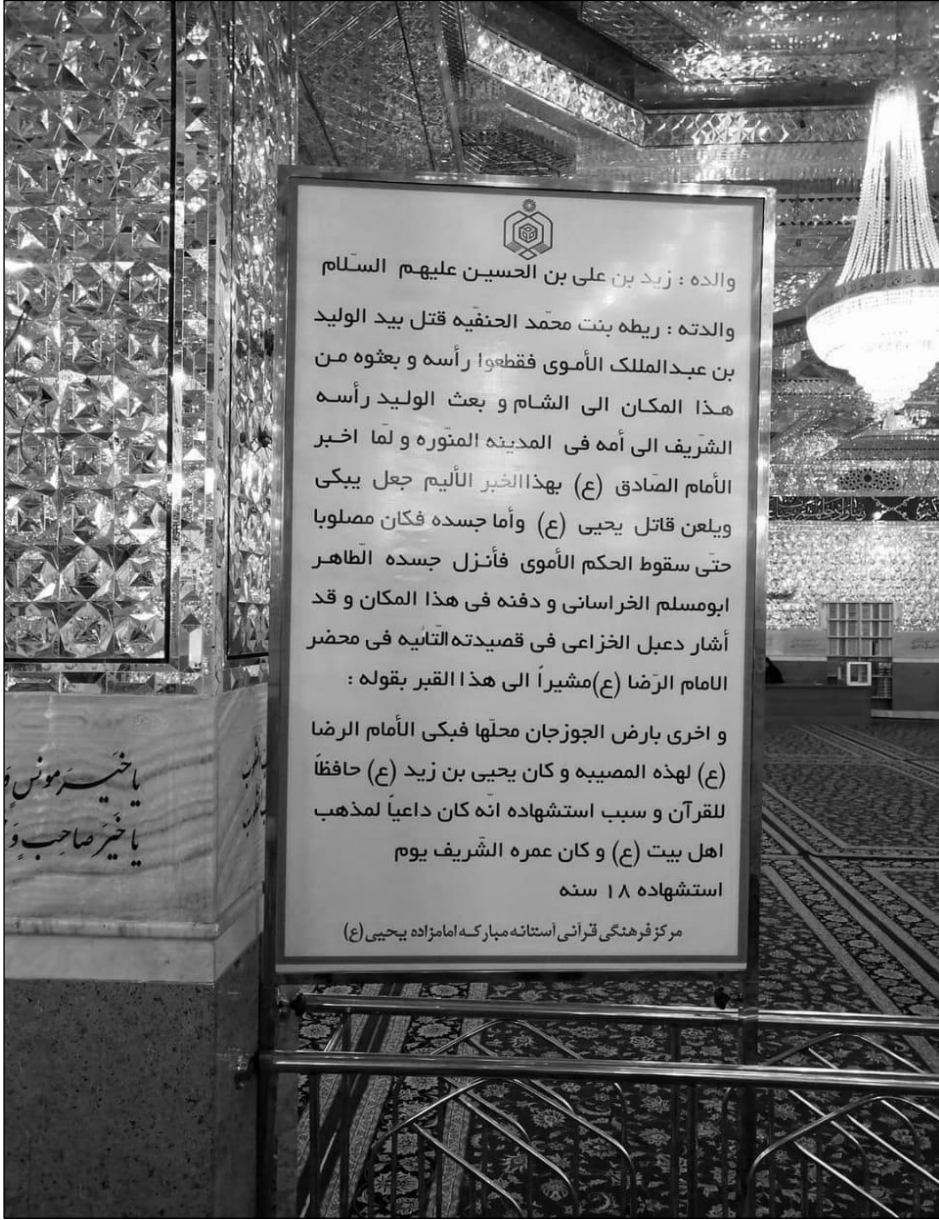 والده : زید بن علی بن الحسین علیهم السّلام
والدته : ریطه بنت محمّد الحنفیه قتل بید الولید
بن عبدالمللک الأموی فقطعوا رأسه و بعثوه من
هذا المکان الی الشام و بعث الولید رأسه
الشّریف الی أمه فی المدینه المنّوره و لمّا اخبر
الأمام الصّادق (ع) بهذاالخبر الألیم جعل یبکی
ویلعن قاتل یحیی (ع) وأما جسده فکان مصلوبا
حتّی سقوط الحکم الأموی فأنزل جسده الطّاهر
ابومسلم الخراسانی و دفنه فی هذا المکان و قد
أشار دعبل الخزاعی فی قصیدته التّائیه فی محضر
الامام الرّضا (ع)مشیراً الی هذا القبر بقوله :
و اخری بارض الجوزجان محلّها فبکی الأمام الرضا
(ع) لهذه المصیبه و کان یحیی بن زید (ع) حافظاً
للقرآن و سبب استشهاده انّه کان داعیاً لمذهب
اهل بیت (ع) و کان عمره الشّریف یوم
استشهاده ۱۸ سنه
مرکز فرهنگی قرآنی آستانه مبارکه امامزاده یحیی (ع)
یا خیر مونس و
یا خیر صاحب و